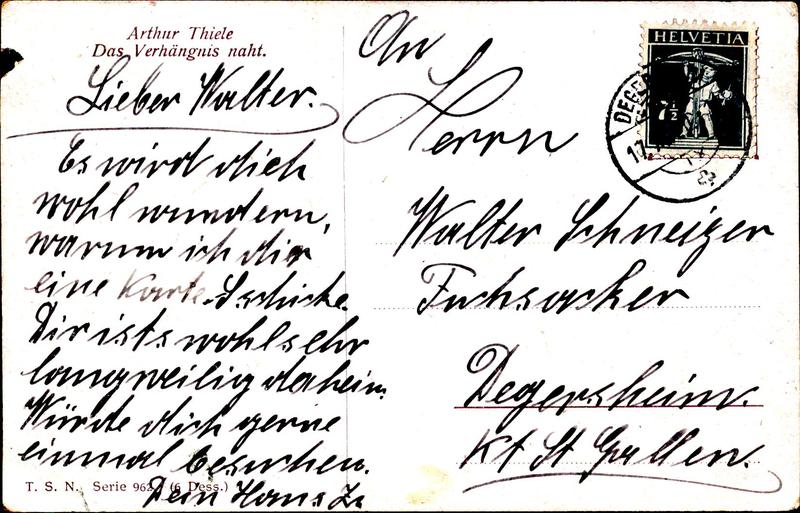 Arthur Thiele
Das Verhängnis naht.
Lieber Walter.
Es wird dich
wohl wundern,
warum ich dir
eine Karte schicke.
Dir ists wohl sehr
langweilig daheim.
Würde dich gerne
einmal besuchen.
Dein Hans
T. S. N. Serie (6 Dess.)
An
Herrn
Walter Schneizer
Fuchsacker
Degersheim.
Kt St Gallen.
HELVETIA
7½
DEGE
17.